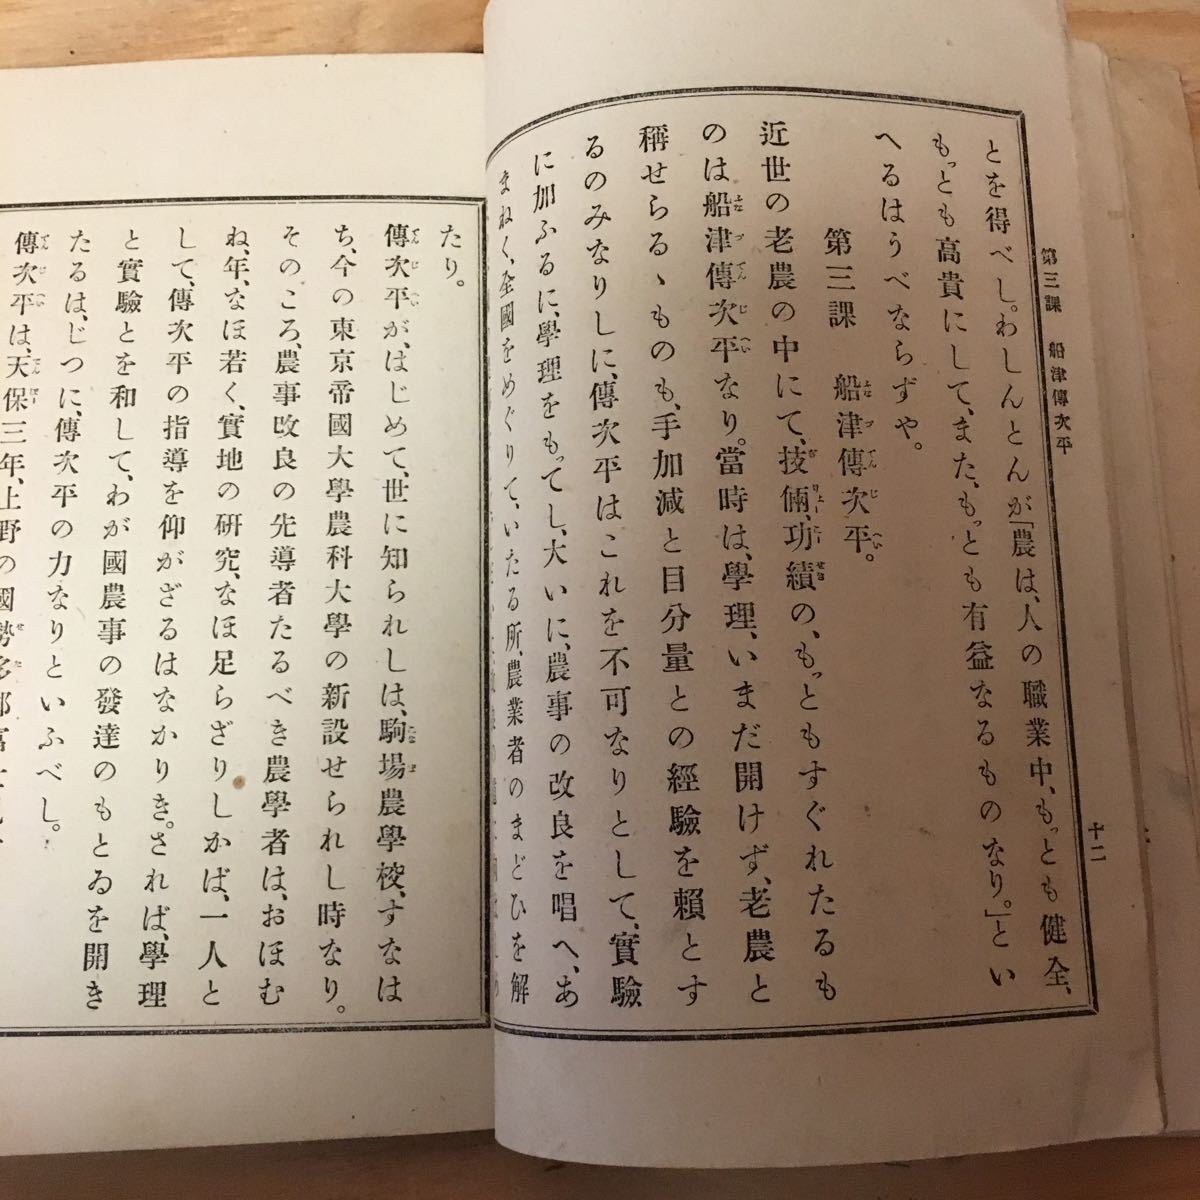 第三課　船津傳次平
十二
とを得べし。わしんとんが「農は、人の職業中、もっとも健全、
もっとも高貴にして、また、もっとも有益なるものなり。」とい
へるはうべならずや。
第三課　船津傳次平。
近世の老農の中にて、技倆、功績の、もっともすぐれたるも
のは船津傳次平なり。當時は、學理、いまだ開けず、老農と
稱せらるゝものも、手加減と目分量との經驗を賴とす
るのみなりしに、傳次平はこれを不可なりとして、實驗
に加ふるに、學理をもってし、大いに、農事の改良を唱へ、あ
まねく、全國をめぐりて、いたる所、農業者のまどひを解
たり。
傳次平が、はじめて、世に知られしは、駒場農學校、すなは
ち、今の東京帝國大學農科大學の新設せられし時なり。
そのころ、農事改良の先導者たるべき農學者は、おほむ
ね、年、なほ若く、實地の研究、なほ足らざりしかば、一人と
して、傳次平の指導を仰がざるはなかりき。されば、學理
と實驗とを和して、わが國農事の發達のもとゐを開き
たるは、じつに、傳次平の力なりといふべし。
傳次平は、天保三年、上野の國勢多郡富士見